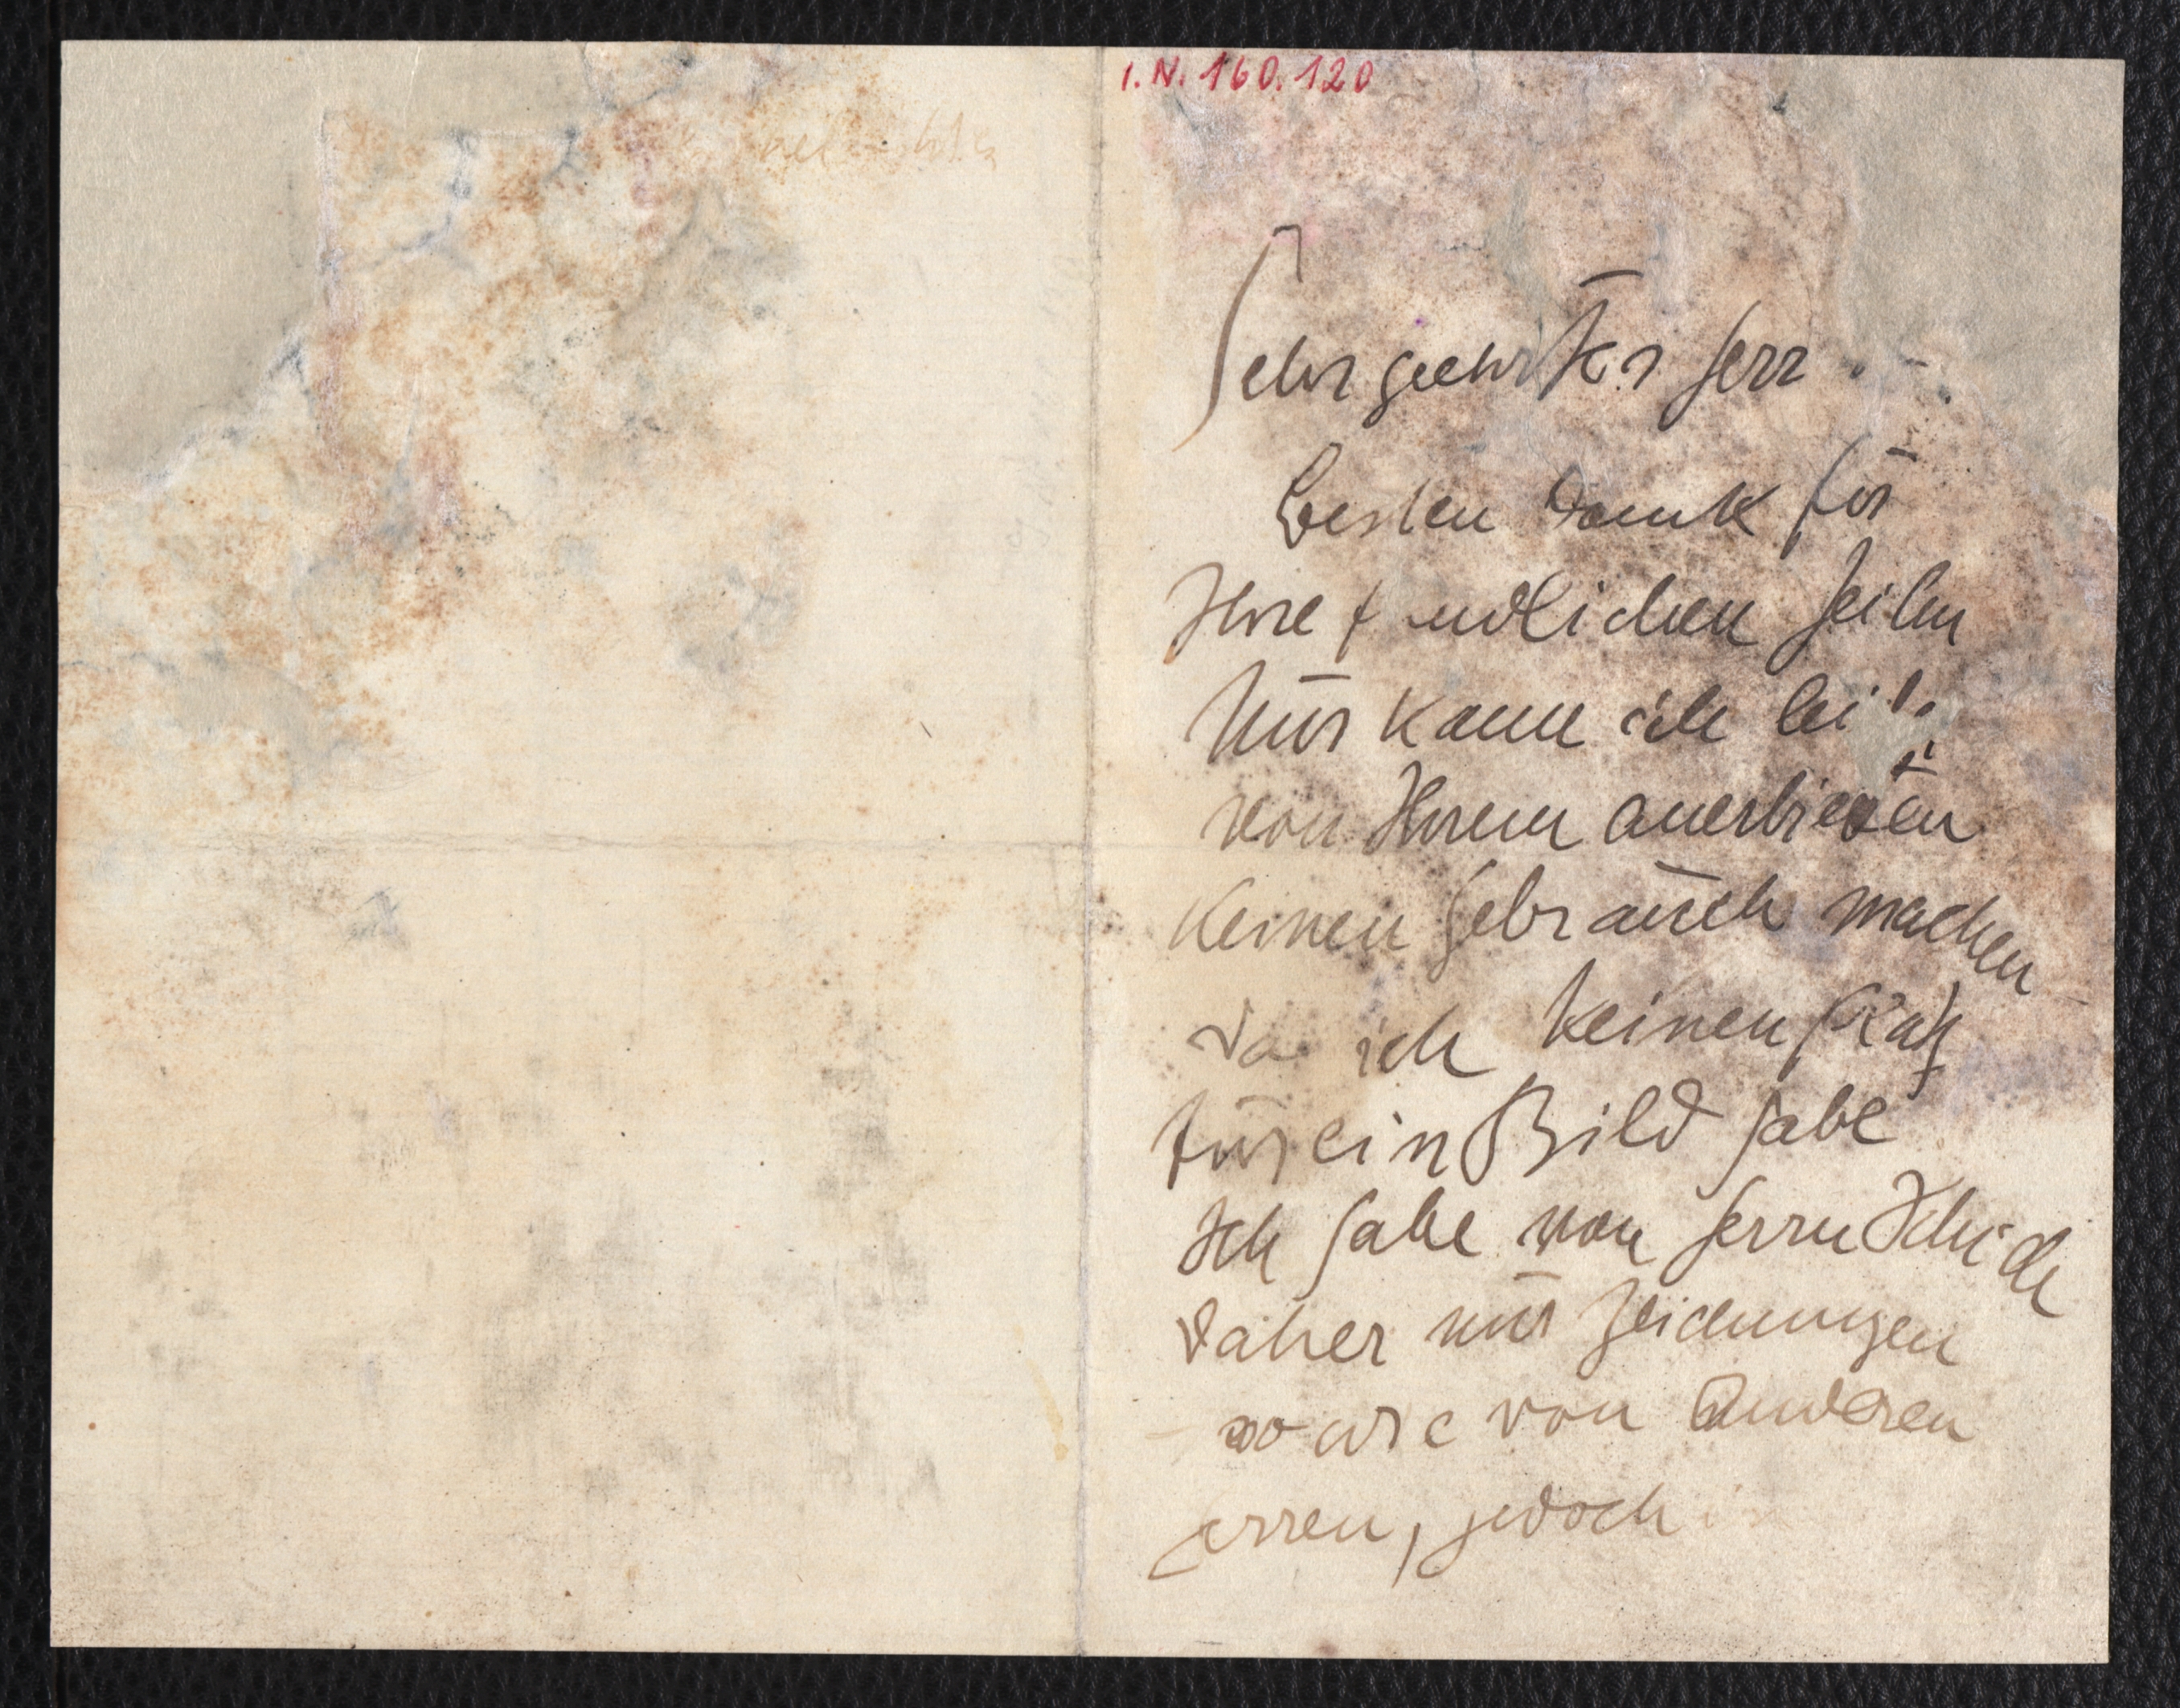 I.N. 160.120
Sehr geehrter Herr
besten Dank für
Ihre Zeilen
Nur kann ich
von Ihrem Anerbieten
keinen Gebrauch machen
da ich keinen Platz
für ein Bild habe
Ich habe von Herrn Schiele
daher nur Zeichnungen
sowie von Anderen
Herren, jedoch in